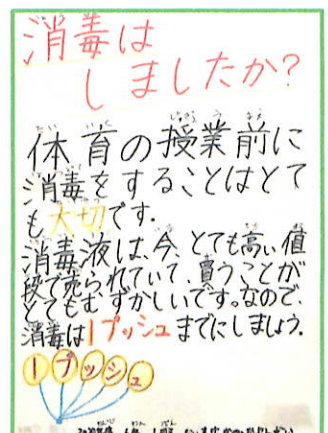 消毒は
しましたか?
体育の授業前に
消毒をすることはとて
も大切です.
消毒液は、今、とても高い値
段で売られていて、買うことが
とてもむずかしいです。なので、
消毒は1プッシュまでにしましょう.
1プッシュ